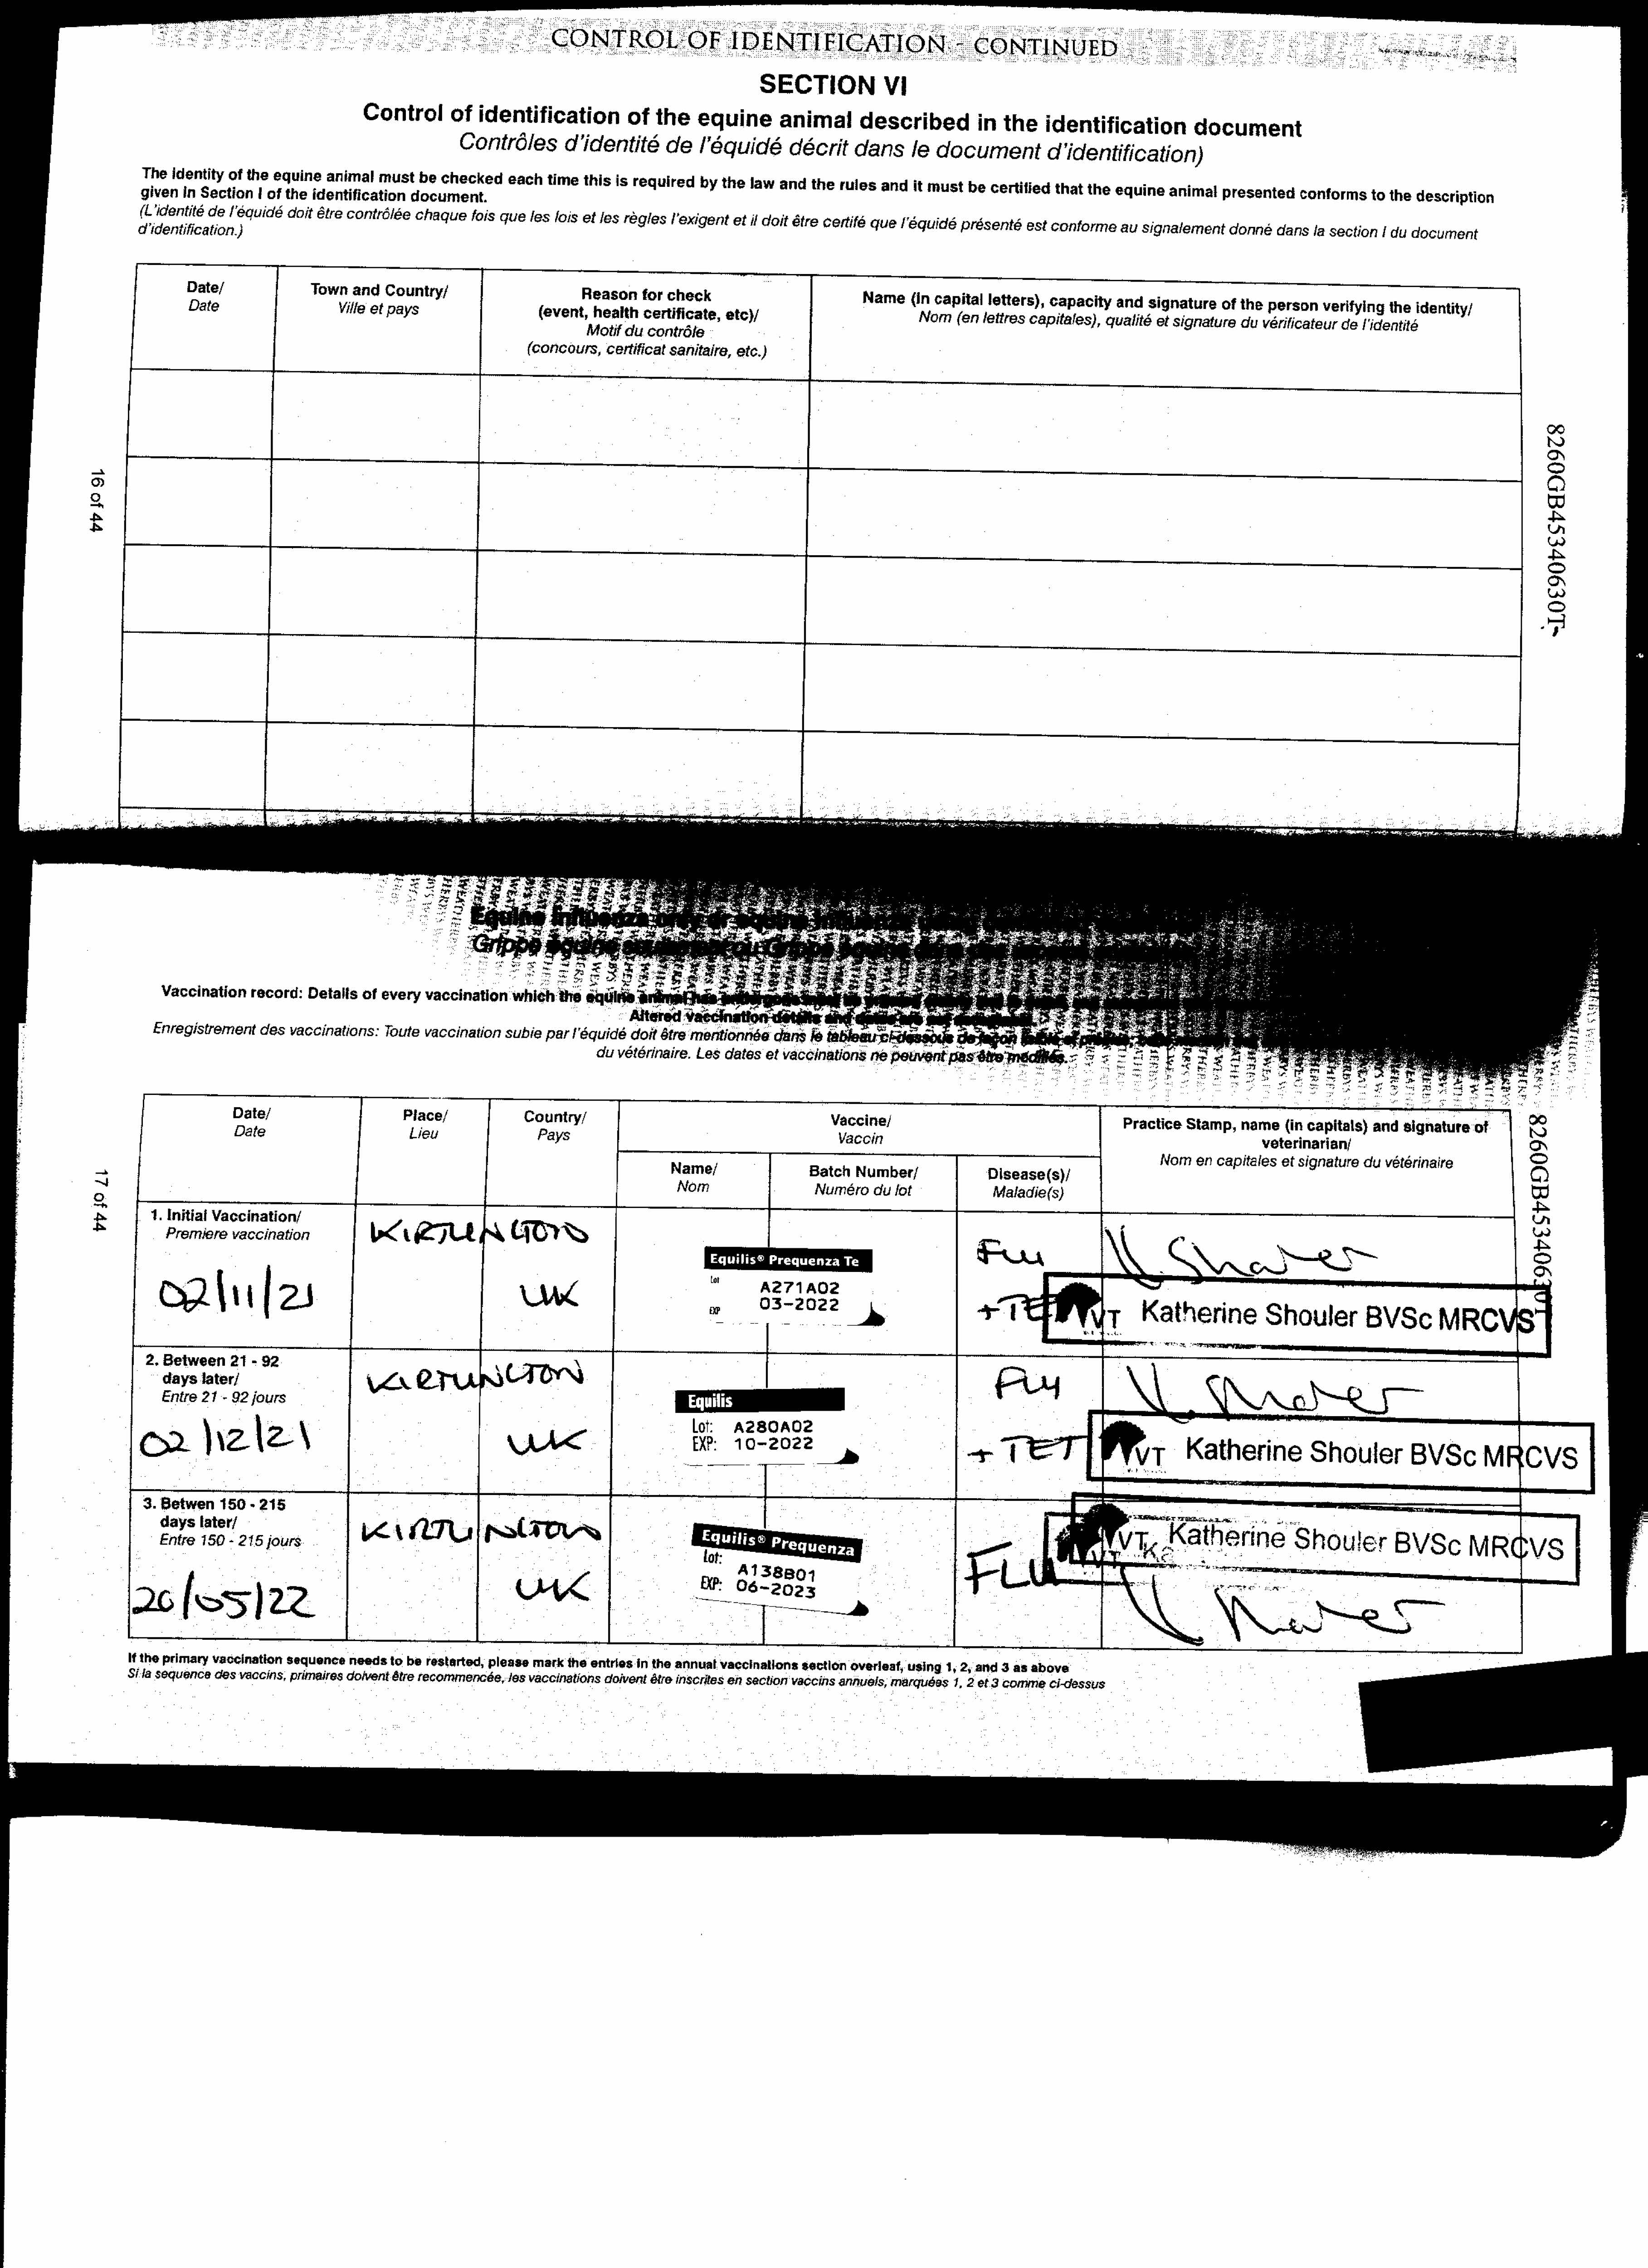 CONTROL OF IDENTIFICATION - CONTINUED
SECTION VI
Control of identification of the equine animal described in the identification document
Contrôles d'identité de l'équidé décrit dans le document d'identification)
The identity of the equine animal must be checked each time this is required by the law and the rules and it must be certified that the equine animal presented conforms to the description
given in Section I of the identification document.
(L'identité de l'équidé doit être contrôlée chaque fois que les lois et les règles l'exigent et il doit être certifé que l'équidé présenté est conforme au signalement donné dans la section I du document
d'identification.)
Date/
Date
Town and Country/
Ville et pays
Reason for check
(event, health certificate, etc)/
Motif du contrôle
(concours, certificat sanitaire, etc.)
Name (in capital letters), capacity and signature of the person verifying the identity/
Nom (en lettres capitales), qualité et signature du vérificateur de l'identité
16 of 44
8260GB45340630T
Equine influenza only or equine
Grippe équine seulement ou Grippe équine
Vaccination record: Details of every vaccination which the equine animal has
Altered vaccination details and
Enregistrement des vaccinations: Toute vaccination subie par l'équidé doit être mentionnée dans le tableau ci-dessous de façon lisible et précise;
du vétérinaire. Les dates et vaccinations ne peuvent pas être modifiés.
Date/
Date
Place/
Lieu
Country/
Pays
Vaccine/
Vaccin
Name/
Nom
Batch Number/
Numéro du lot
Disease(s)/
Maladie(s)
Practice Stamp, name (in capitals) and signature of
veterinarian/
Nom en capitales et signature du vétérinaire
17 of 44
8260GB45340630T
1. Initial Vaccination/
Premiere vaccination
02/11/21
KIRTLINGTON
UK
Equilis® Prequenza Te
Lot A271A02
EXP 03-2022
Flu
+ TET
K. Shouler
VT Katherine Shouler BVSc MRCVS
2. Between 21 - 92
days later/
Entre 21 - 92 jours
02/12/21
KIRTLINGTON
UK
Equilis
Lot: A280A02
EXP: 10-2022
Flu
+ TET
K. Shouler
VT Katherine Shouler BVSc MRCVS
3. Betwen 150 - 215
days later/
Entre 150 - 215 jours
20/05/22
KIRTLINGTON
UK
Equilis® Prequenza
Lot: A138B01
EXP: 06-2023
FLU
VT Katherine Shouler BVSc MRCVS
K Shouler
If the primary vaccination sequence needs to be restarted, please mark the entries in the annual vaccinations section overleaf, using 1, 2, and 3 as above
Si la sequence des vaccins, primaires doivent être recommencée, les vaccinations doivent être inscrites en section vaccins annuels, marquées 1, 2 et 3 comme ci-dessus